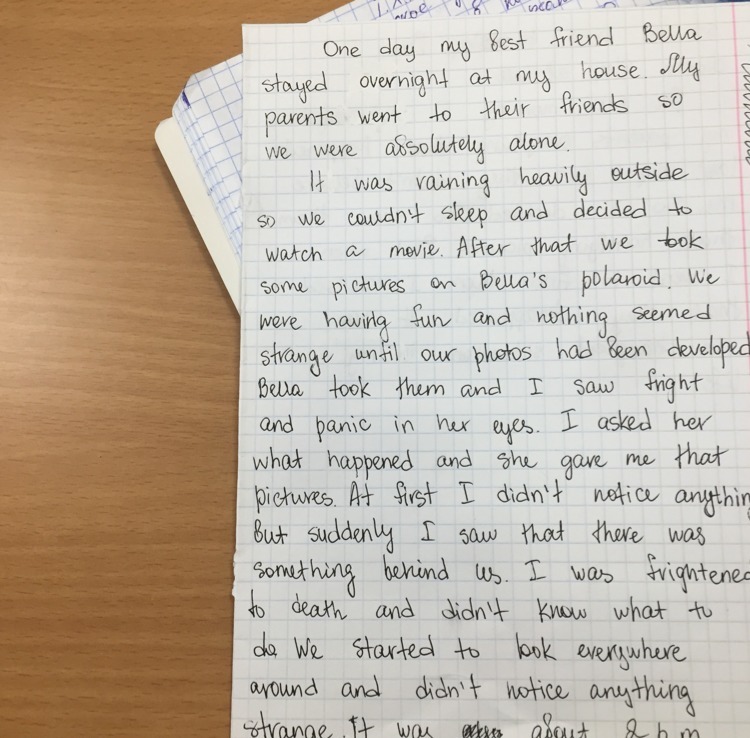 One day my best friend Bella
stayed overnight at my house. My
parents went to their friends so
we were absolutely alone.
It was raining heavily outside
so we couldn't sleep and decided to
watch a movie. After that we took
some pictures on Bella's polaroid. We
were having fun and nothing seemed
strange until our photos had been developed
Bella took them and I saw fright
and panic in her eyes. I asked her
what happened and she gave me that
pictures. At first I didn't notice anythin
But suddenly I saw that there was
something behind us. I was frightened
to death and didn't know what to
do. We started to look everywhere
around and didn't notice anything
strange. It was about